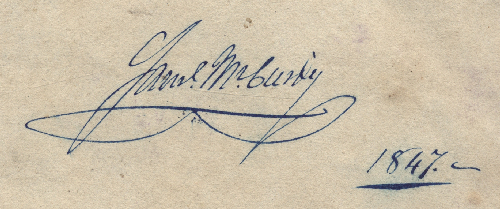 Saml. McCurdy
1847.